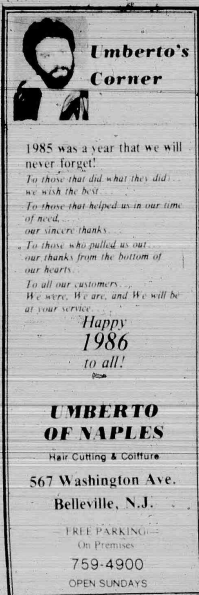 Umberto's
Corner
1985 was a year that we will
never forget!
To those that did what they did...
we wish the best
To those that helped us in our time
of need...
our sincere thanks...
To those who pulled us out...
our thanks from the bottom of
our hearts.
To all our customers...
We were, We are, and We will be
at your service...
Happy
1986
to all!
UMBERTO
OF NAPLES
Hair Cutting & Coiffure
567 Washington Ave.
Belleville, N.J.
FREE PARKING
On Premises
759-4900
OPEN SUNDAYS